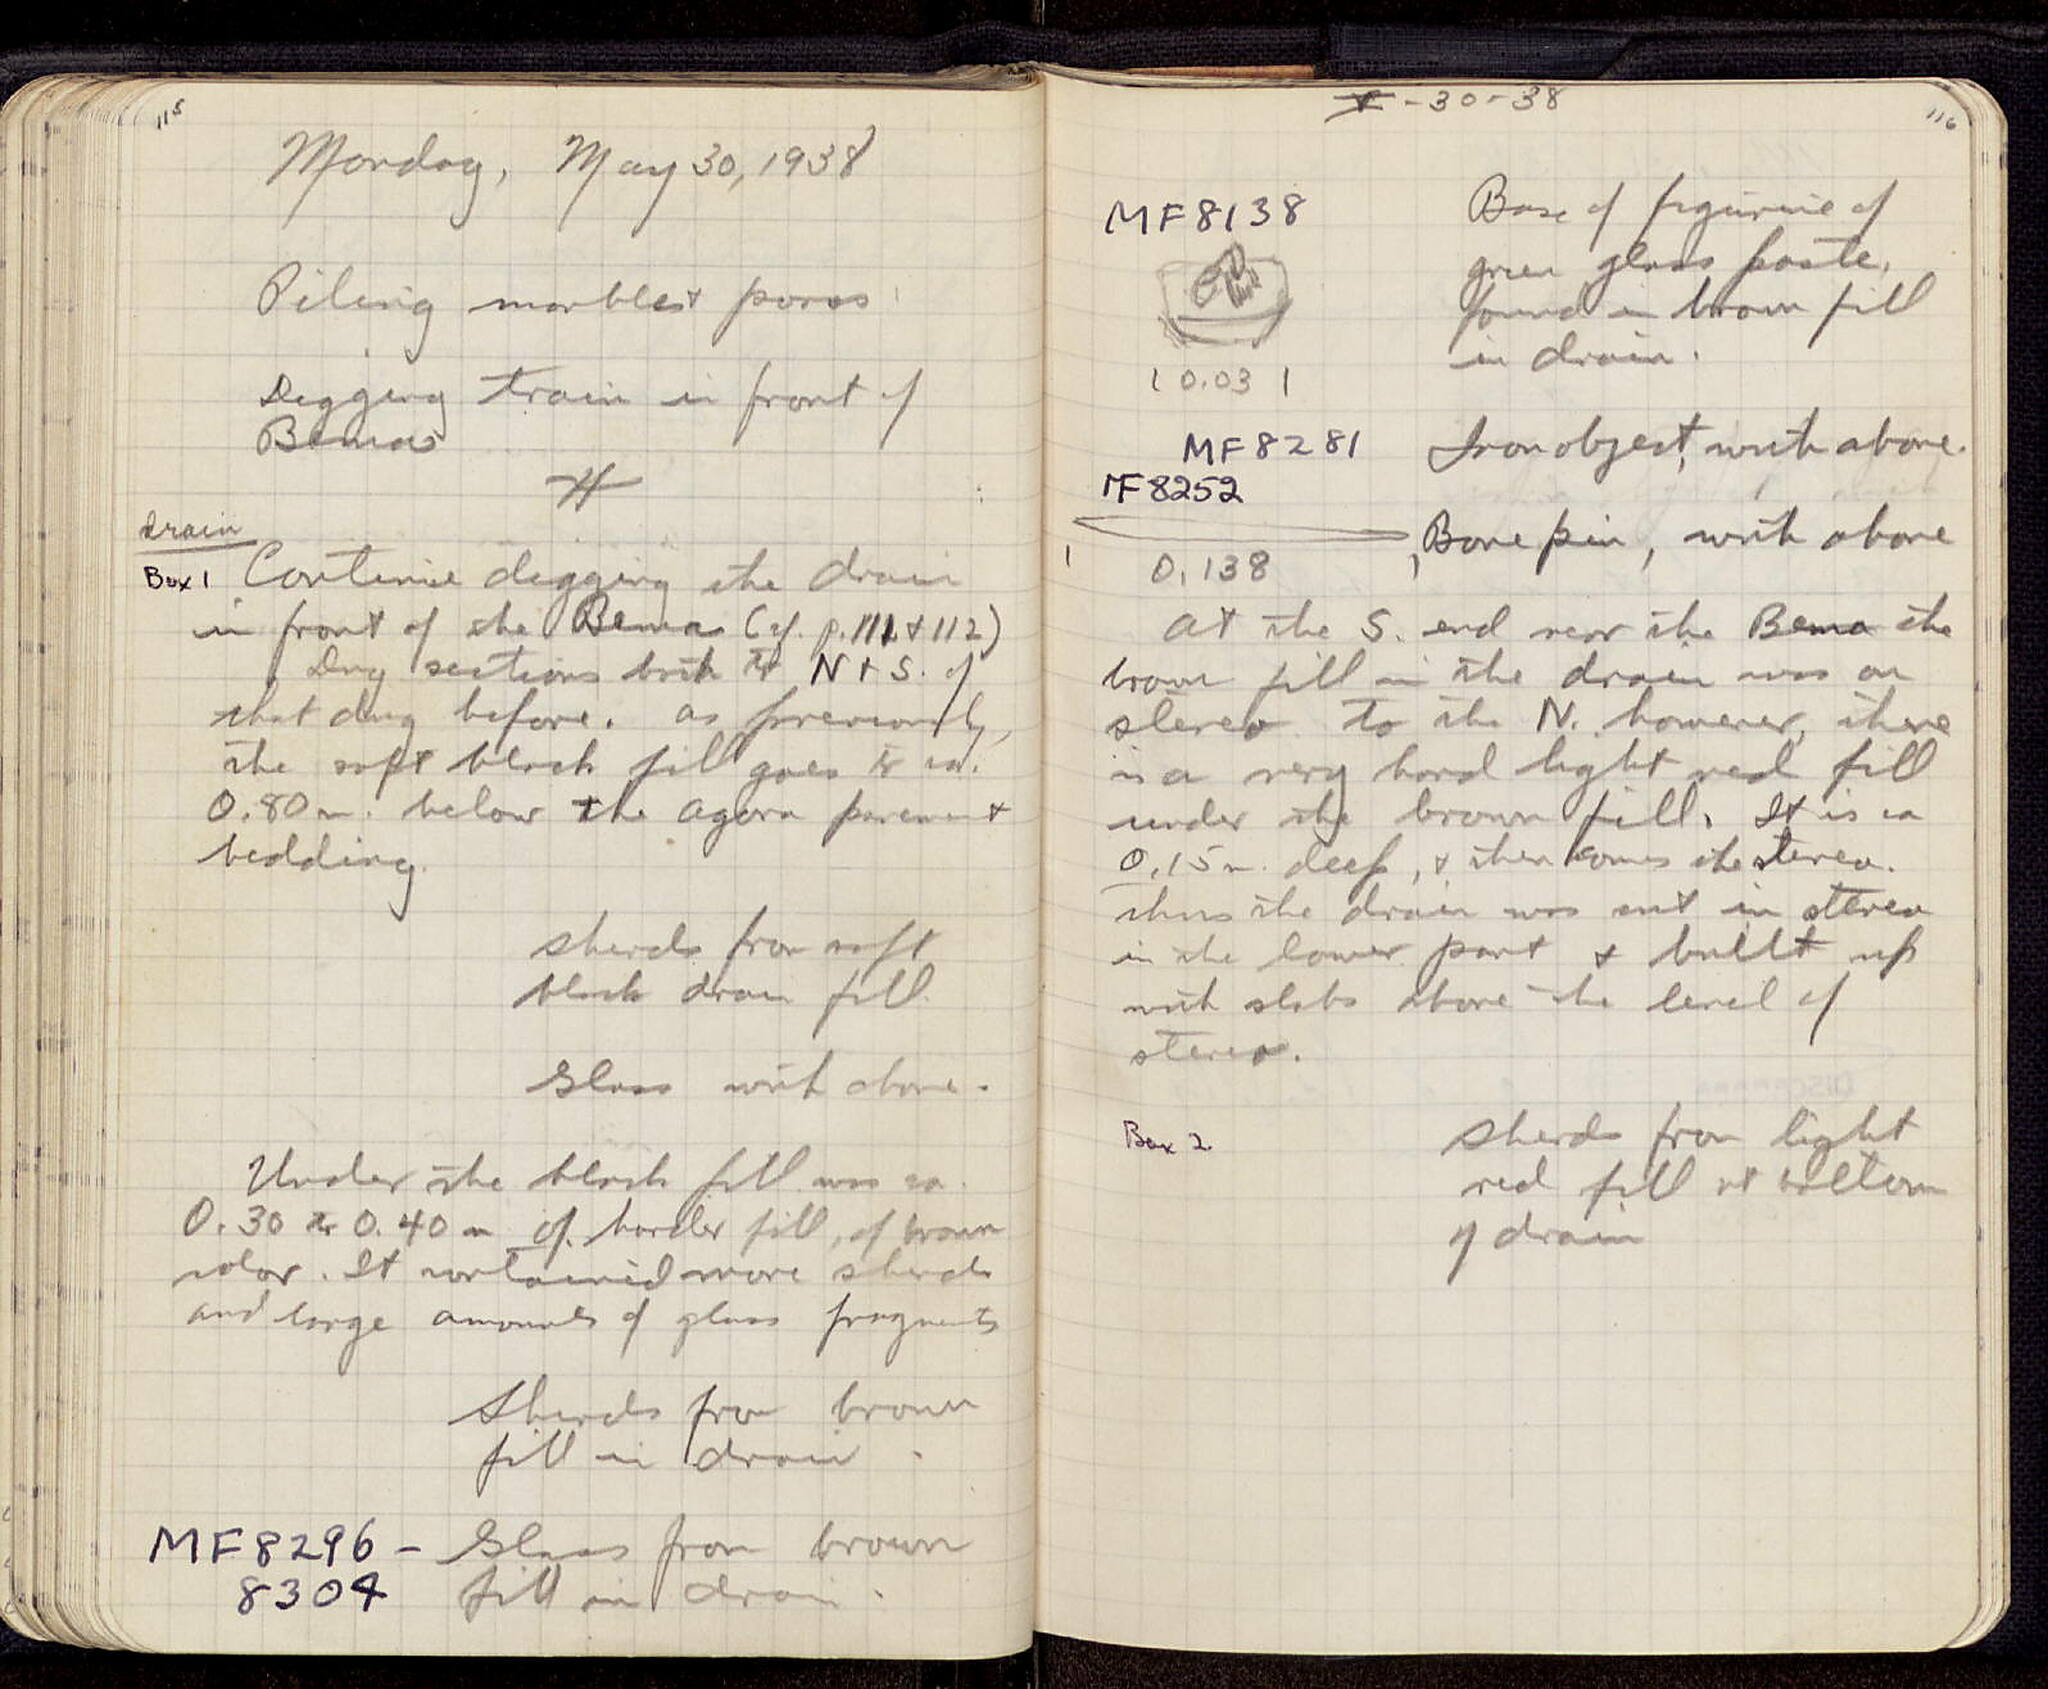 115
Monday, May 30, 1938
Piling marbles & poros
Digging train in front of
Bema
Drain
Box 1 Continue digging the drain
in front of the Bema (cf. p. 111 & 112)
Dug sections both to N & S. of
that dug before. As previously,
the soft black fill goes to ca.
0.80 m. below the agora pavement
bedding.
Sherds from soft
black drain fill.
Glass with above.
Under the black fill was ca.
0.30 to 0.40 m of harder fill, of brown
color. It contained more sherds
and large amounts of glass fragments
Sherds from brown
fill in drain.
MF8296 - Glass from brown
8304 fill in drain.
V-30-38
116
MF8138 Base of figurine of
green glass paste,
found in brown fill
in drain.
0.03
MF8281 Iron object, with above.
MF8252
Bone pin, with above
0.138
At the S. end near the Bema the
brown fill in the drain was on
stereo. To the N. however, there
is a very hard light red fill
under the brown fill. It is ca
0.15 m. deep, & then comes the stereo.
Thus the drain was cut in stereo
in the lower part & built up
with slabs above the level of
stereo.
Box 2 Sherds from light
red fill at bottom
of drain